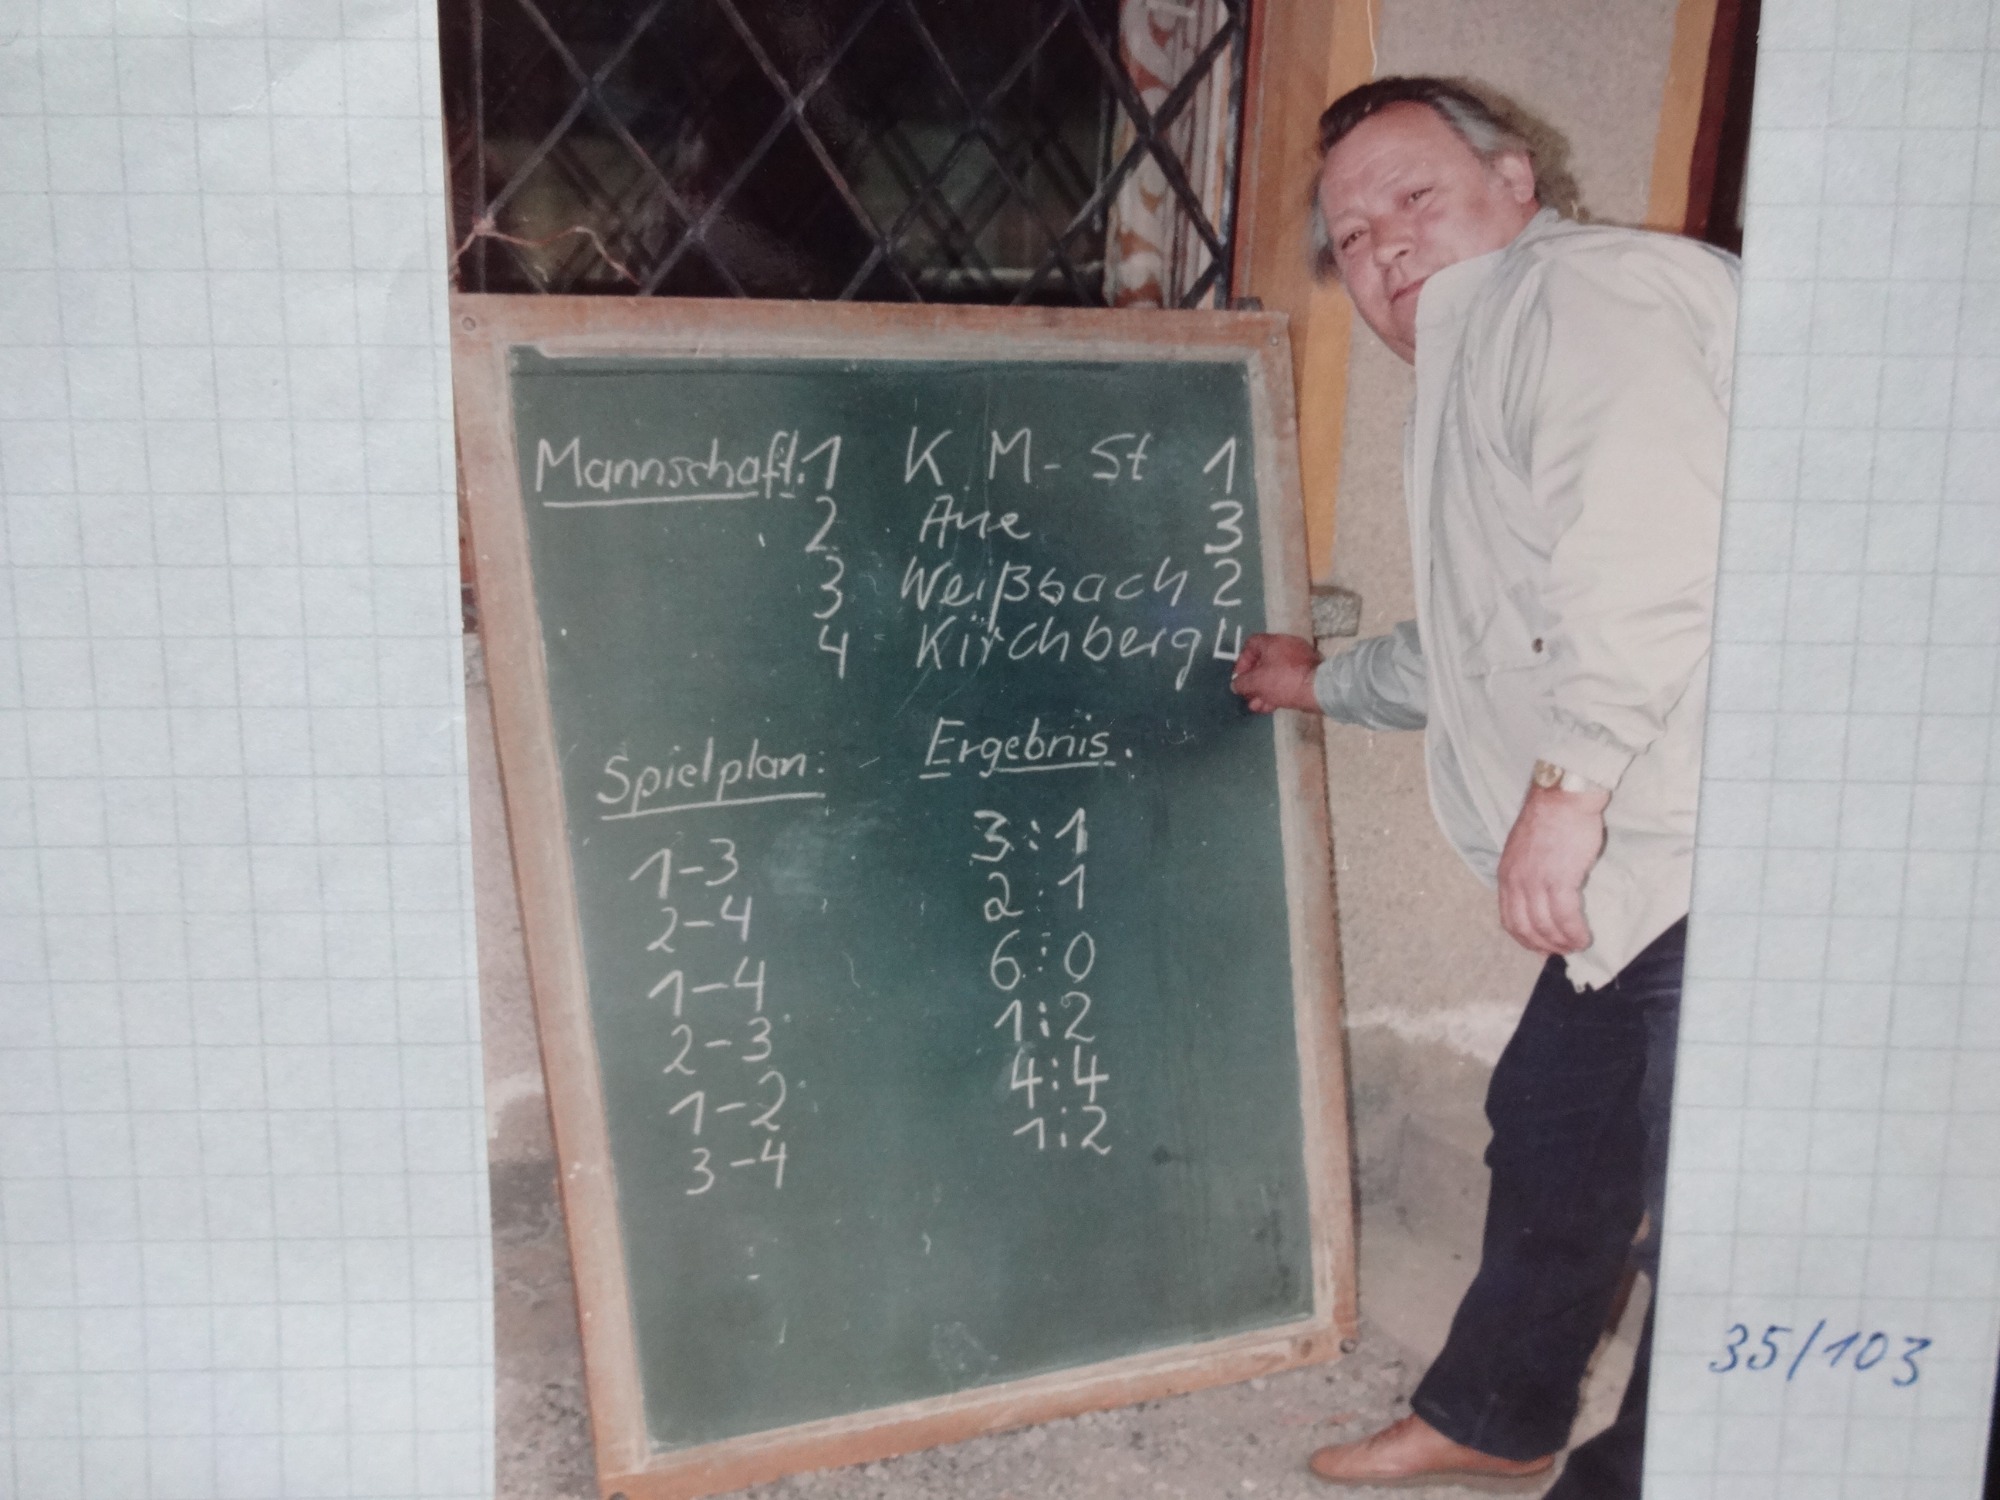 Mannschaft: 1 K. M.- St 1
2 Aue 3
3 Weißbach 2
4 Kirchberg 4
Spielplan: Ergebnis.
1-3 3:1
2-4 2:1
1-4 6:0
2-3 1:2
1-2 4:4
3-4 1:2
35/103